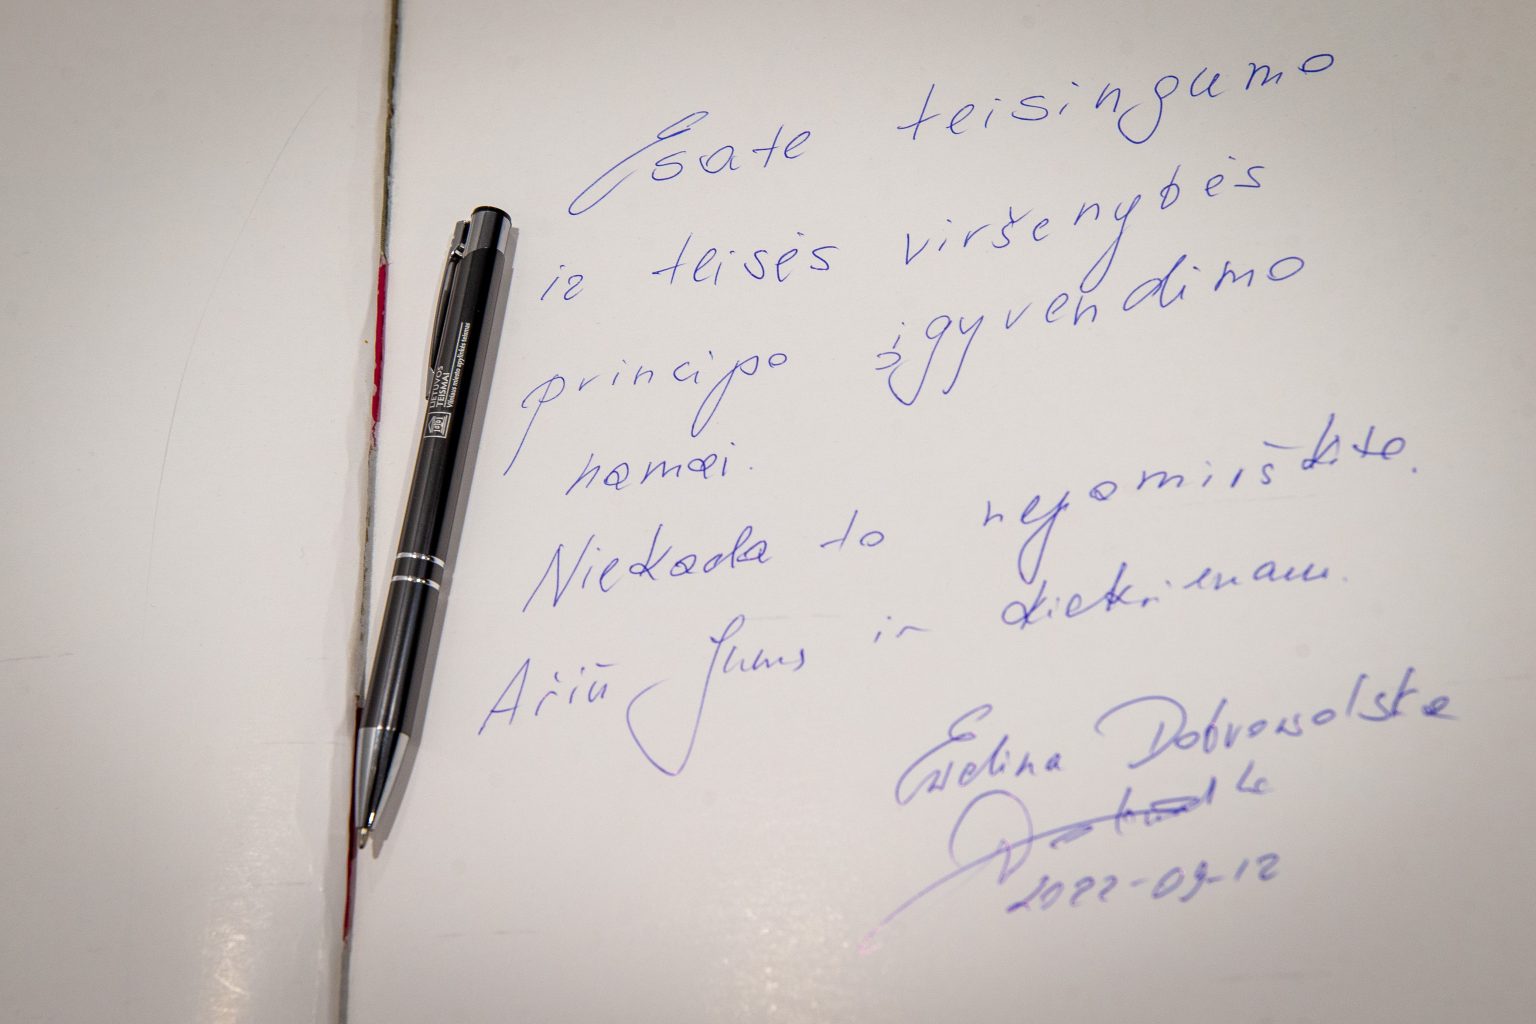 Esate teisingumo
ir teisės viršenybės
principo įgyvendimo
namai.
Niekada to nepamirškite.
Ačiū Jums ir kiekvienam.
Ewelina Dobrowolska
2022-09-12
LIETUVOS
TEISMAI
Vilniaus miesto apylinkės teismas